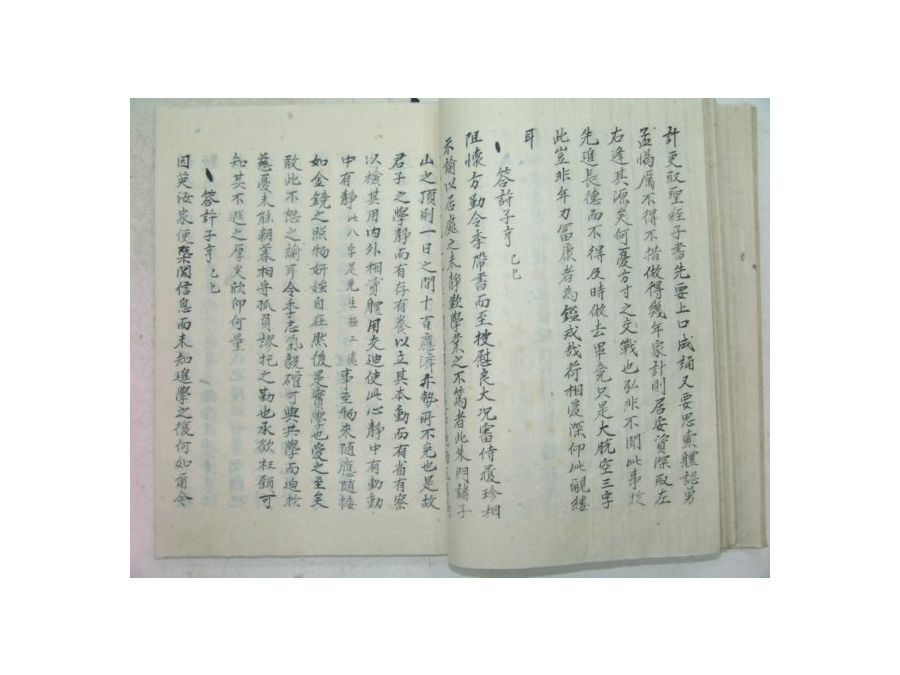 計更取聖程子書先要上口成誦又要思索體認勇
孟惕厲不得不措做得幾年家計則居安資深取左
右逢其源矣何憂方寸之交戰也弘非不聞此事於
先進長德而不得及時做去畢竟只是大脫空三字
此豈非年力富康者為鑑戒哉荷相愛深仰此覼縷
耳
答許子亨 己巳
阻懷方勤令季帶書而至披慰良大况審侍履珍相
示喻以居處之未静歎學業之不篤者此朱門諸子
山之頂則一日之間十百應濟亦勢所不免也是故
君子之學静而有存有養以立其本動而有省有察
以檢其用内外相資體用交迪使此心静中有動動
中有静此八字是先生極工處事至物來隨應隨接
如金鏡之照物妍媸自在然後是實學也愛之至矣
敢此不恕之諭耳令季志氣毅確可與共學而迪於
慈憂未能朝暮相守孤負謬托之勤也承欲枉顧可
知其不遐之厚矣欣仰何量
答許子亨 己巳
因英汝家便槩聞信息而未知進學之復何如而令